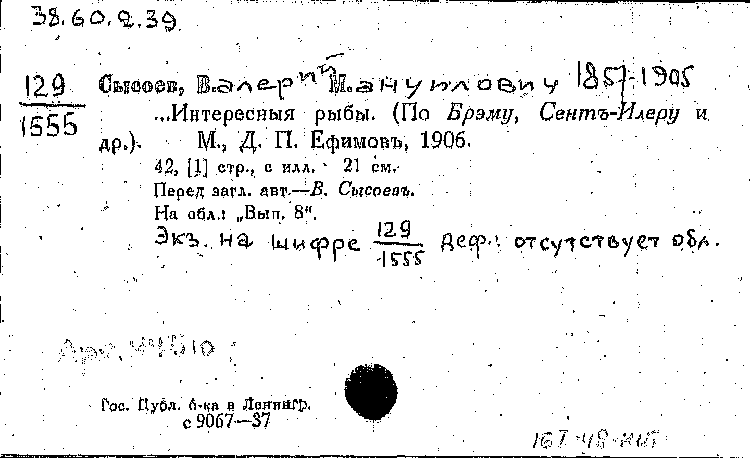 38.60.2.39
129
1555
Сысоев, Валерий Мануилович 1857-1905
...Интересныя рыбы. (По Брэму, Сентъ-Илеру и
др.). М., Д. П. Ефимовъ, 1906.
42, [1] стр., с илл. 21 см.
Перед загл. авт.—В. Сысоевъ.
На обл.: „Вып. 8“.
Экз. на шифре 129/1555 деф.: отсутствует обл.
Гос. Публ. б-ка в Ленингр.
с 9067—37